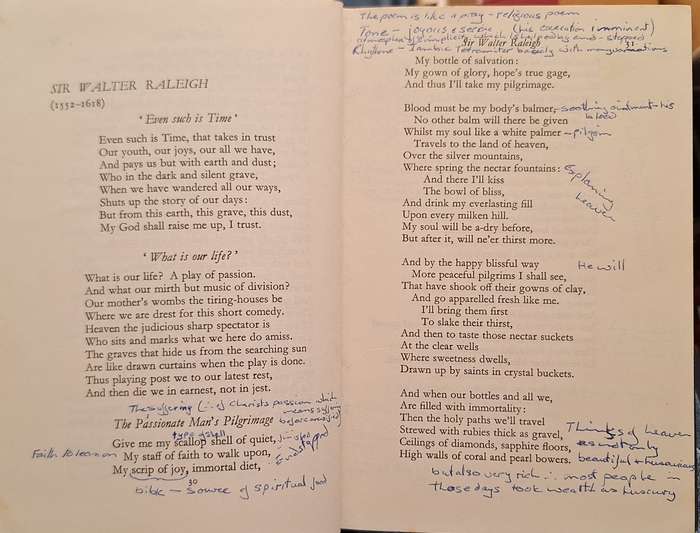 SIR WALTER RALEIGH
(1552–1618)
‘Even such is Time’
Even such is Time, that takes in trust
Our youth, our joys, our all we have,
And pays us but with earth and dust;
Who in the dark and silent grave,
When we have wandered all our ways,
Shuts up the story of our days:
But from this earth, this grave, this dust,
My God shall raise me up, I trust.
‘What is our life?’
What is our life? A play of passion.
And what our mirth but music of division?
Our mother's wombs the tiring-houses be
Where we are drest for this short comedy.
Heaven the judicious sharp spectator is
Who sits and marks what we here do amiss.
The graves that hide us from the searching sun
Are like drawn curtains when the play is done.
Thus playing post we to our latest rest,
And then die we in earnest, not in jest.
The suffering (∴ of Christs passion which
means suffering
The Passionate Man's Pilgrimage
type of shell
Give me my scallop shell of quiet,
Faith to lean on My staff of faith to walk upon,
endstopped
My scrip of joy, immortal diet,
30
bible – source of spiritual food
The poem is like a pray – religious poem
Tone – joyous & serene (his execution imminent)
atmosphere of simplicity which is helped by end-stopped
Sir Walter Raleigh 31
Rhythm – Iambic Tetrameter basically with many variations
My bottle of salvation:
My gown of glory, hope's true gage,
And thus I'll take my pilgrimage.
Blood must be my body's balmer, – soothing ointment – his
No other balm will there be given blood
Whilst my soul like a white palmer – pilgrim
Travels to the land of heaven,
Over the silver mountains,
Where spring the nectar fountains: Explaining
And there I'll kiss heaven
The bowl of bliss,
And drink my everlasting fill
Upon every milken hill.
My soul will be a-dry before,
But after it, will ne'er thirst more.
And by the happy blissful way He will
More peaceful pilgrims I shall see,
That have shook off their gowns of clay,
And go apparelled fresh like me.
I'll bring them first
To slake their thirst,
And then to taste those nectar suckets
At the clear wells
Where sweetness dwells,
Drawn up by saints in crystal buckets.
And when our bottles and all we,
Are filled with immortality:
Then the holy paths we'll travel
Strewed with rubies thick as gravel, Thinks of heaven
Ceilings of diamonds, sapphire floors, as not only
High walls of coral and pearl bowers. beautiful & luxurious
but also very rich ∴ most people in
those days took wealth as luxury